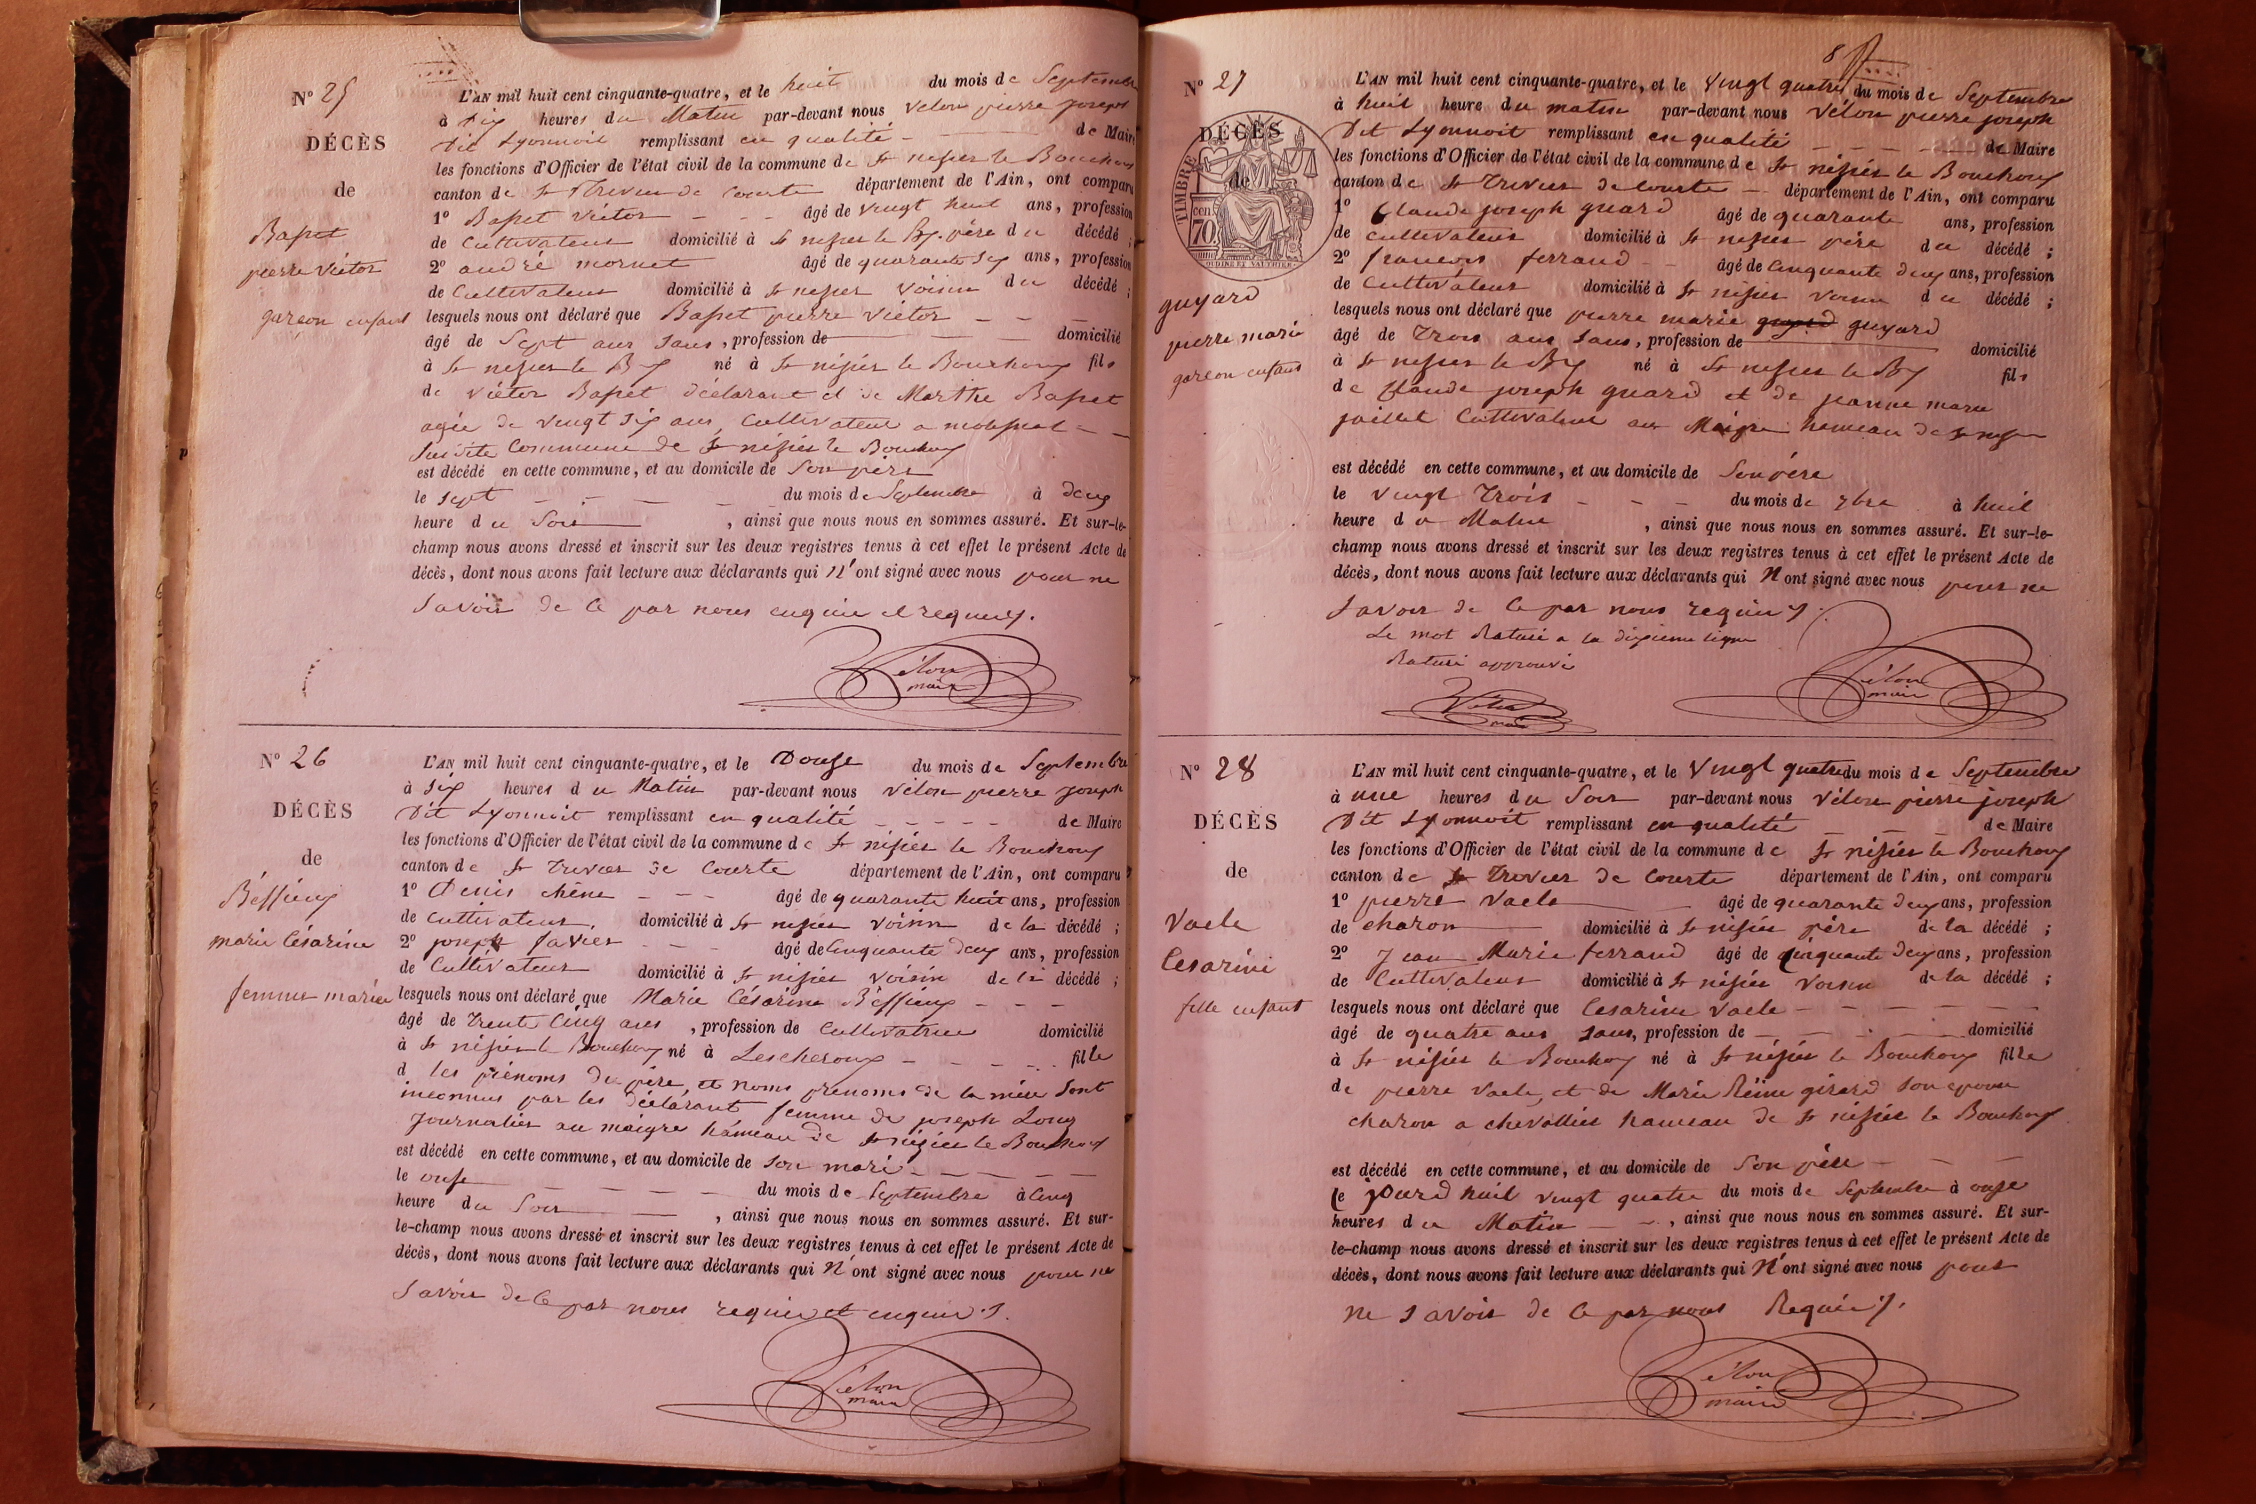 Nº 25
DÉCÈS
de
Baptet
pierre Victor
garcon enfant
L'AN mil huit cent cinquante-quatre, et le huit du mois de Septembre
à Dix heures du Matin par-devant nous Vélon pierre joseph
Dit Lyonnoit remplissant en qualité de Maire
les fonctions d'Officier de l'état civil de la commune de St nisier le Bouchoux
canton de St Trivier de Courte département de l'Ain, ont comparu
1º Baptet Victor âgé de vingt huit ans, profession
de Cultivateur domicilié à St nisier le Bx. père du décédé ;
2º andré mornet âgé de quarante Six ans, profession
de Cultivateur domicilié à St nisier voisin du décédé ;
lesquels nous ont déclaré que Baptet pierre Victor
âgé de Sept ans Sans, profession de domicilié
à St nisier le Bx né à St nisier le Bouchoux fils
de Victor Baptet déclarant et de Marthe Baptet
agée de vingt Six ans, Cultivateur a
Susdite Commune de St nisier le Bouchoux
est décédé en cette commune, et au domicile de Son père
le Sept du mois de Septembre à deux
heure du Soir , ainsi que nous nous en sommes assuré. Et sur-le-
champ nous avons dressé et inscrit sur les deux registres tenus à cet effet le présent Acte de
décès, dont nous avons fait lecture aux déclarants qui n'ont signé avec nous pour ne
Savoir de ce par nous enquis et requis.
Vélon
maire
Nº 26
DÉCÈS
de
Béffieux
marie Césarine
femme mariée
L'AN mil huit cent cinquante-quatre, et le Douze du mois de Septembre
à Six heures du Matin par-devant nous Vélon pierre joseph
Dit Lyonnoit remplissant en qualité de Maire
les fonctions d'Officier de l'état civil de la commune de St nisier le Bouchoux
canton de St Trivier de Courte département de l'Ain, ont comparu
1º Denis chêne âgé de quarante huit ans, profession
de Cultivateur domicilié à St nisier voisin de la décédé ;
2º joseph favier âgé de Cinquante deux ans, profession
de Cultivateur domicilié à St nisier voisin de la décédé ;
lesquels nous ont déclaré que Marie Césarine Béffieux
âgé de Trente Cinq ans , profession de Cultivatrice domicilié
à St nisier le Bouchoux né à Lescheroux fille
d les prénoms du père, et noms prénoms de la mère Sont
inconnus par les déclarant femme de joseph Long
Journalier au maigre hameau de St nizier le Bouchoux
est décédé en cette commune, et au domicile de Son mari
le onze du mois de Septembre à Cinq
heure du Soir , ainsi que nous nous en sommes assuré. Et sur-
le-champ nous avons dressé et inscrit sur les deux registres tenus à cet effet le présent Acte de
décès, dont nous avons fait lecture aux déclarants qui N'ont signé avec nous pour ne
Savoir de ce par nous requis et enquis.
Vélon
maire
8
Nº 27
DÉCÈS
de
TIMBRE
70 cen.
OUDINE ET VAUTHIER
guyard
pierre marie
garcon enfant
L'AN mil huit cent cinquante-quatre, et le Vingt quatre du mois de Septembre
à huit heure du matin par-devant nous Vélon pierre joseph
Dit Lyonnoit remplissant en qualité de Maire
les fonctions d'Officier de l'état civil de la commune de St nisier le Bouchoux
canton de St Trivier de Courte département de l'Ain, ont comparu
1º Claude joseph guard âgé de quarante ans, profession
de cultivateur domicilié à St nisier père du décédé ;
2º francois ferrand âgé de Cinquante deux ans, profession
de Cultivateur domicilié à St nisier voisin du décédé ;
lesquels nous ont déclaré que pierre marie guyard
âgé de Trois ans Sans, profession de domicilié
à St nisier le Bx né à St nisier le Bx fils
de Claude joseph guard et de jeanne marie
paillet Cultivateur au Maigre hameau de St nisier
est décédé en cette commune, et au domicile de Son père
le vingt Trois du mois de 7bre à huit
heure du Matin , ainsi que nous nous en sommes assuré. Et sur-le-
champ nous avons dressé et inscrit sur les deux registres tenus à cet effet le présent Acte de
décès, dont nous avons fait lecture aux déclarants qui N'ont signé avec nous pour ne
Savoir de ce par nous requis.
Le mot Raturé a la dixieme ligne
Raturé approuvé
Vélon
maire
Vélon
maire
Nº 28
DÉCÈS
de
Vaele
Cesarine
fille enfant
L'AN mil huit cent cinquante-quatre, et le Vingt quatre du mois de Septembre
à une heures du Soir par-devant nous Vélon pierre joseph
Dit Lyonnoit remplissant en qualité de Maire
les fonctions d'Officier de l'état civil de la commune de St nisier le Bouchoux
canton de St Trivier de Courte département de l'Ain, ont comparu
1º pierre Vaele âgé de quarante deux ans, profession
de charon domicilié à St nisier père de la décédé ;
2º Jean Marie ferrand âgé de Cinquante Deux ans, profession
de Cultivateur domicilié à St nisier Voisin de la décédé ;
lesquels nous ont déclaré que Cesarine Vaele
âgé de quatre ans Sans, profession de domicilié
à St nisier le Bouchoux né à St nisier le Bouchoux fille
de pierre Vaele, et de Marie Reine girard Son epouse
charon a chevallier hameau de St nisier le Bouchoux
est décédé en cette commune, et au domicile de Son père
le jourd huit vingt quatre du mois de Septembre à onze
heures du Matin , ainsi que nous nous en sommes assuré. Et sur-
le-champ nous avons dressé et inscrit sur les deux registres tenus à cet effet le présent Acte de
décès, dont nous avons fait lecture aux déclarants qui N'ont signé avec nous pour
ne Savoir de ce par nous Requis.
Vélon
maire